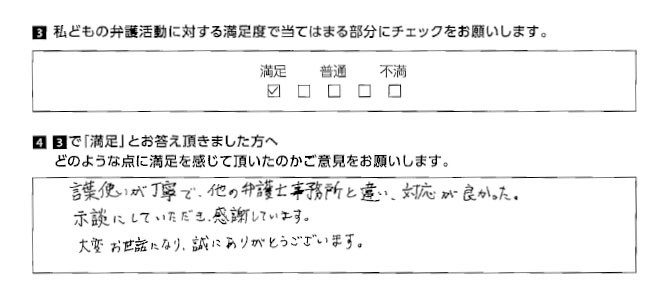 3 私どもの弁護活動に対する満足度で当てはまる部分にチェックをお願いします。
満足 普通 不満
☑ □ □ □ □
4 3で「満足」とお答え頂きました方へ
どのような点に満足を感じて頂いたのかご意見をお願いします。
言葉使いが丁寧で、他の弁護士事務所と違い、対応が良かった。
示談にしていただき、感謝しています。
大変お世話になり、誠にありがとうございます。